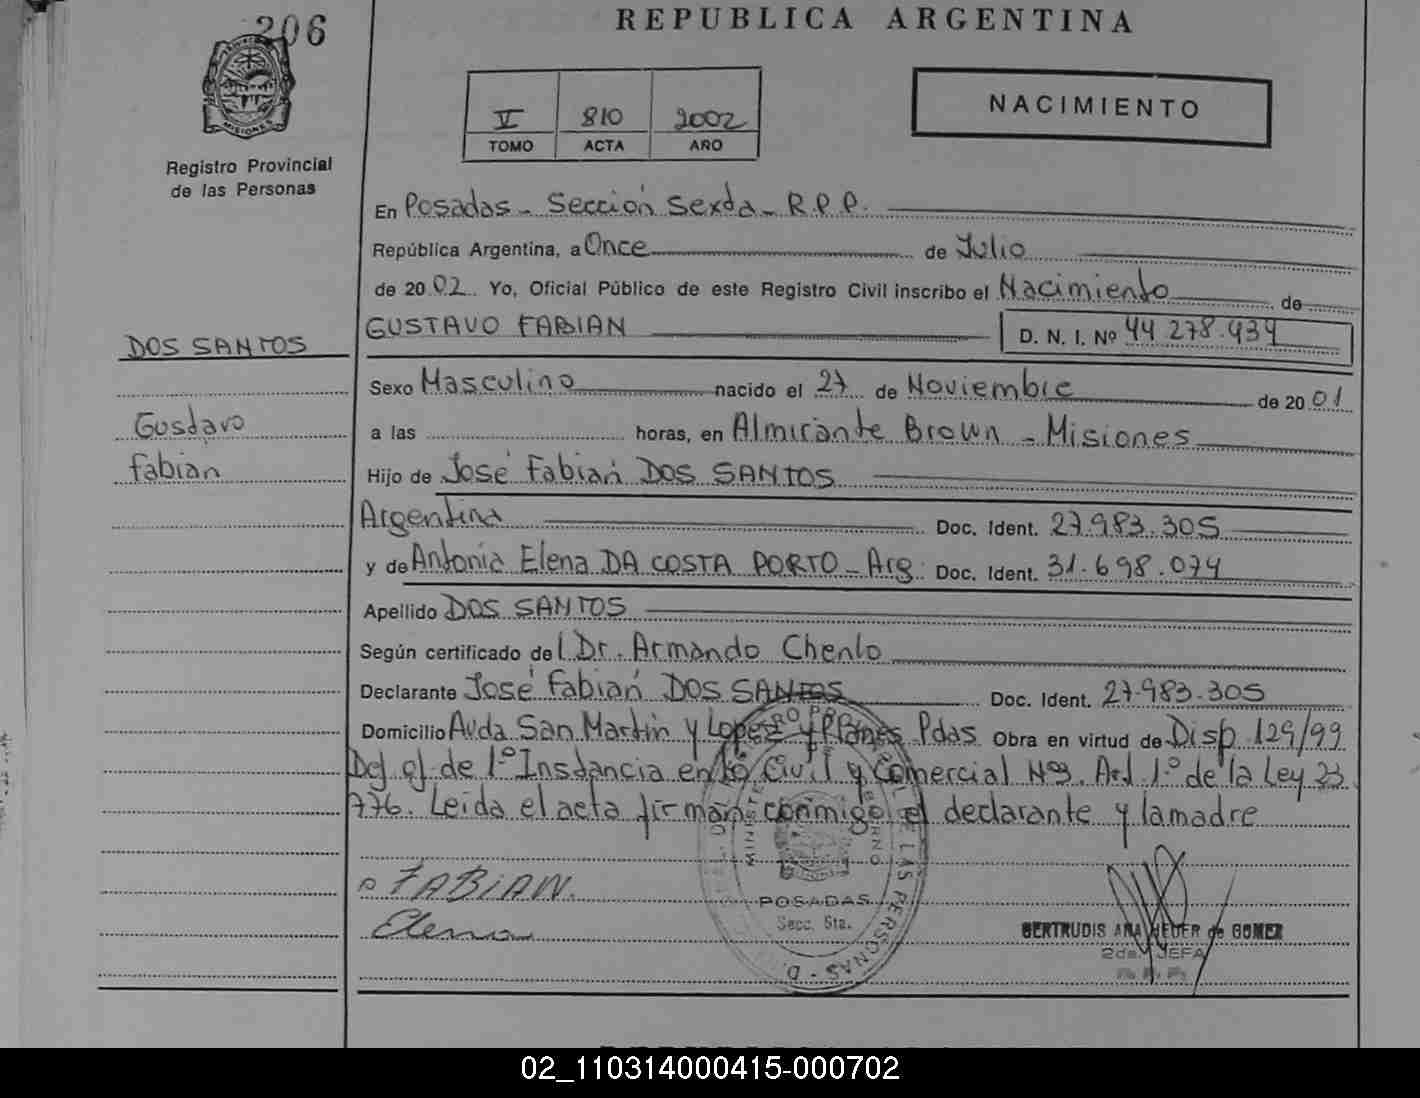 206
REPUBLICA ARGENTINA
MISIONES
Registro Provincial
de las Personas
V 810 2002
TOMO ACTA AÑO
NACIMIENTO
En Posadas - Sección Sexta - R.P.P.
República Argentina, a Once de Julio
de 20 02 Yo, Oficial Público de este Registro Civil inscribo el Nacimiento de
GUSTAVO FABIAN D. N. I. Nº 44 278.434
DOS SANTOS
Sexo Masculino nacido el 27 de Noviembre de 20 01
Gustavo
a las horas, en Almirante Brown - Misiones
fabian
Hijo de José Fabián DOS SANTOS
Argentina Doc. Ident. 27.983.305
y de Antonia Elena DA COSTA PORTO - Arg. Doc. Ident. 31.698.074
Apellido DOS SANTOS
Según certificado del Dr. Armando Chenlo
Declarante José Fabián DOS SANTOS Doc. Ident. 27.983.305
Domicilio Avda San Martín y Lopez y Planes Pdas Obra en virtud de Disp 129/99
Def of de 1º Instancia en lo Civil y Comercial Nº3. Art 1º de la Ley 23.
776. Leída el acta firman conmigo el declarante y la madre
FABIAN.
Elena
POSADAS
Secc. 6ta.
GERTRUDIS ANA HEDER de GOMEZ
2da. JEFA
R. P. P.
02_110314000415-000702